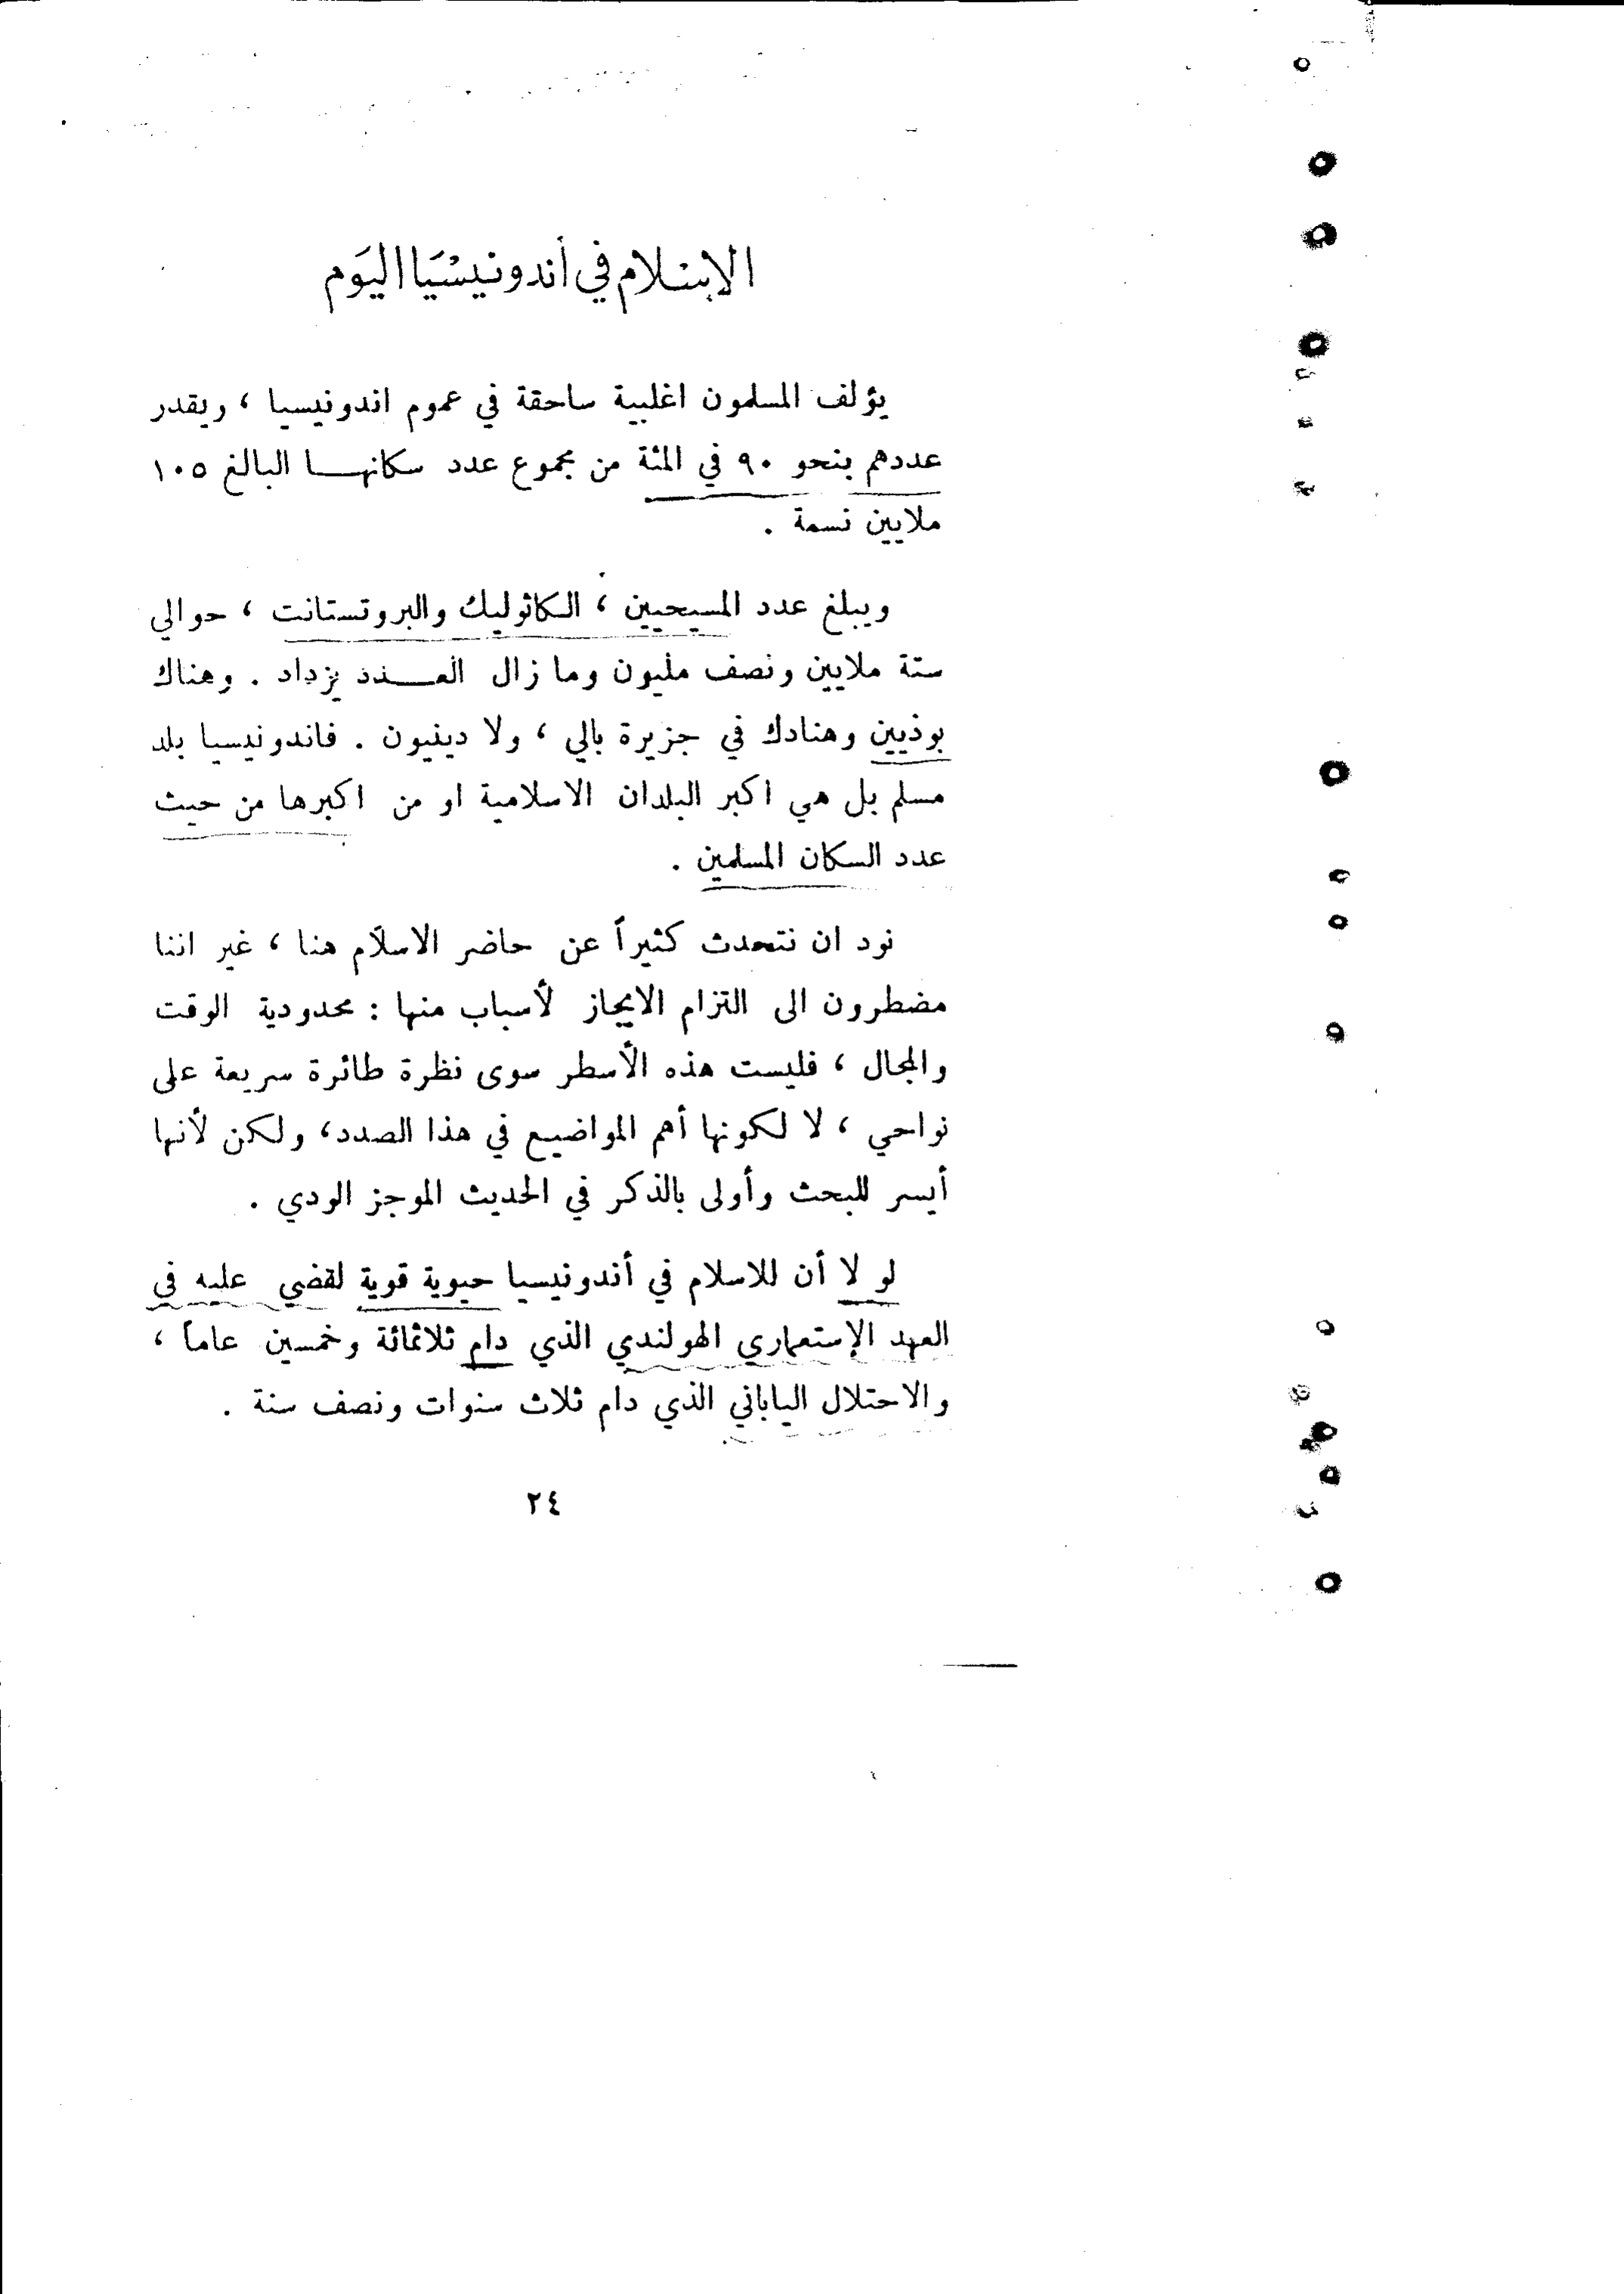 الإسلام في أندونيسيا اليوم
يؤلف المسلمون اغلبية ساحقة في عموم اندونيسيا ، ويقدر
عددهم بنحو ٩٠ في المئة من مجموع عدد سكانها البالغ ١٠٥
ملايين نسمة .
ويبلغ عدد المسيحيين ، الكاثوليك والبروتستانت ، حوالي
ستة ملايين ونصف مليون وما زال العدد يزداد . وهناك
بوذيين وهنادك في جزيرة بالي ، ولا دينيون . فاندونيسيا بلد
مسلم بل هي اكبر البلدان الاسلامية او من اكبرها من حيث
عدد السكان المسلمين .
نود ان نتحدث كثيراً عن حاضر الاسلام هنا ، غير اننا
مضطرون الى التزام الايجاز لأسباب منها : محدودية الوقت
والمجال ، فليست هذه الأسطر سوى نظرة طائرة سريعة على
نواحي ، لا لكونها أهم المواضيع في هذا الصدد، ولكن لأنها
أيسر للبحث وأولى بالذكر في الحديث الموجز الودي .
لو لا أن للاسلام في أندونيسيا حيوية قوية لقضي عليه في
العهد الإستعماري الهولندي الذي دام ثلاثمائة وخمسين عاماً ،
والاحتلال الياباني الذي دام ثلاث سنوات ونصف سنة .
٢٤